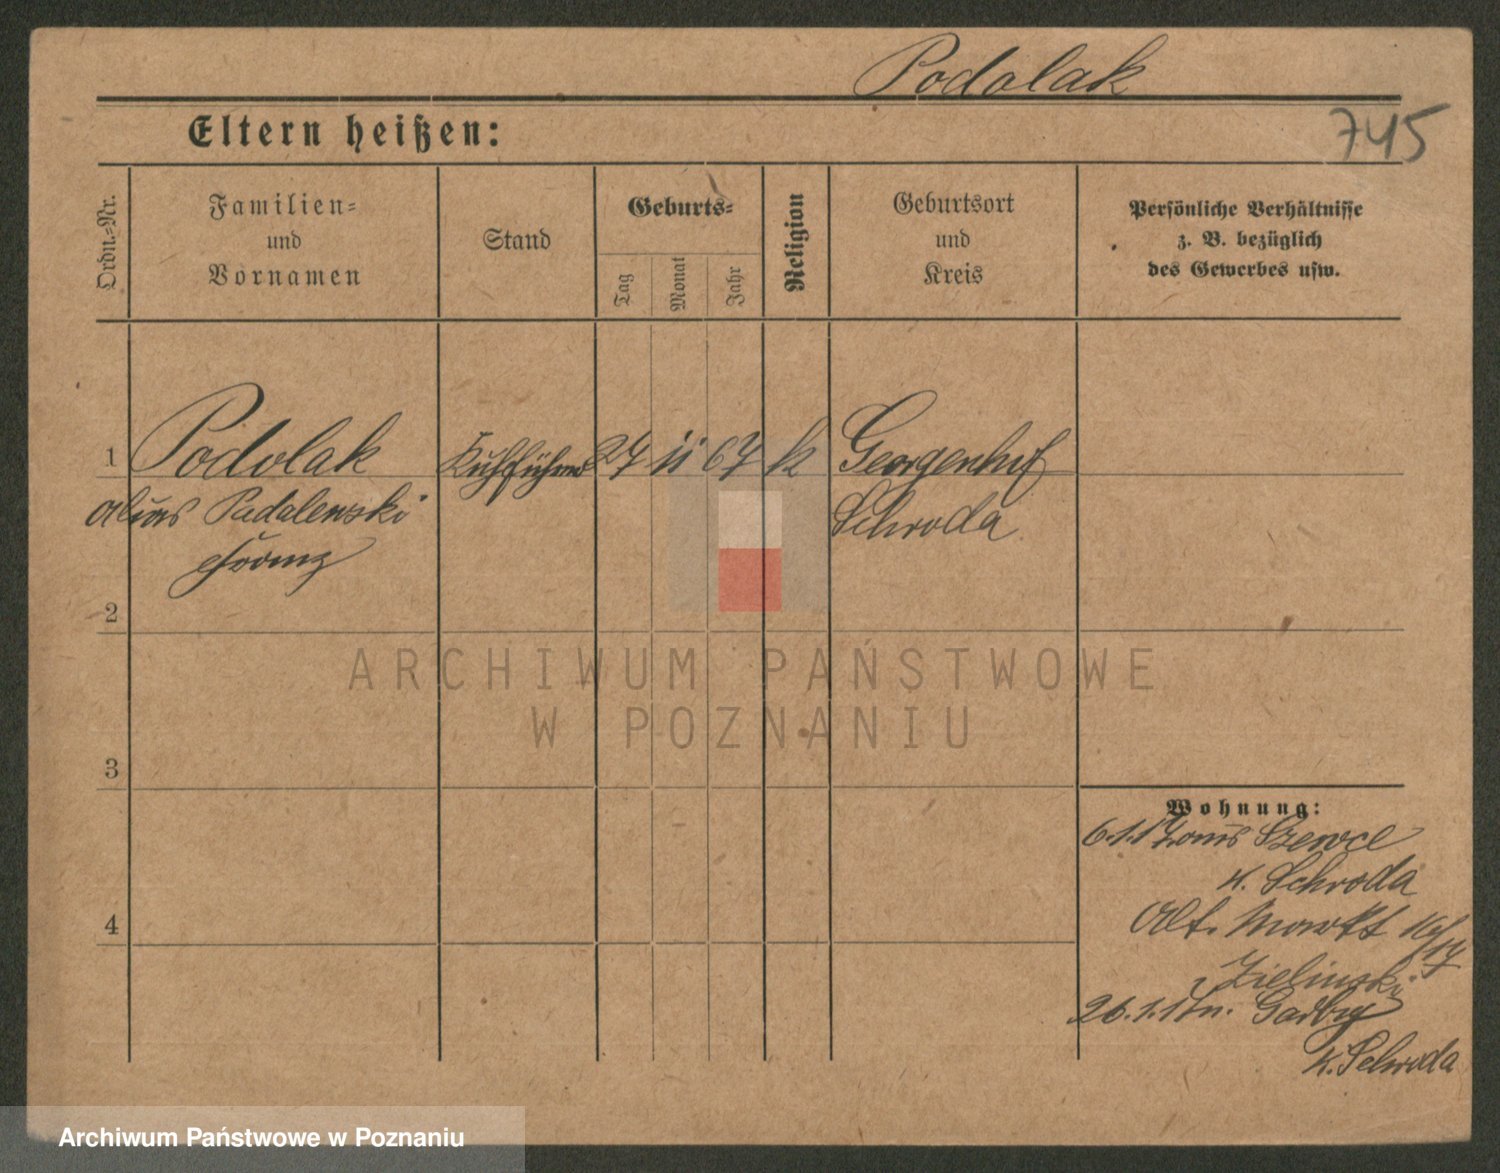 Podolak
745
Eltern heißen:
Ordn.-Nr.
Familien-
und
Vornamen
Stand
Geburts-
Tag
Monat
Jahr
Religion
Geburtsort
und
Kreis
Persönliche Verhältnisse
z. B. bezüglich
des Gewerbes usw.
1 Podolak 27 11 67 k Georgenhof
alias Padalenski Schroda
Franz
2
3
4
Wohnung:
6.1.17 aus Szewce
K. Schroda
Alt. Markt 16/17
Zielinski
26.1.17 n. Garby
K. Schroda
ARCHIWUM PAŃSTWOWE
W POZNANIU
Archiwum Państwowe w Poznaniu